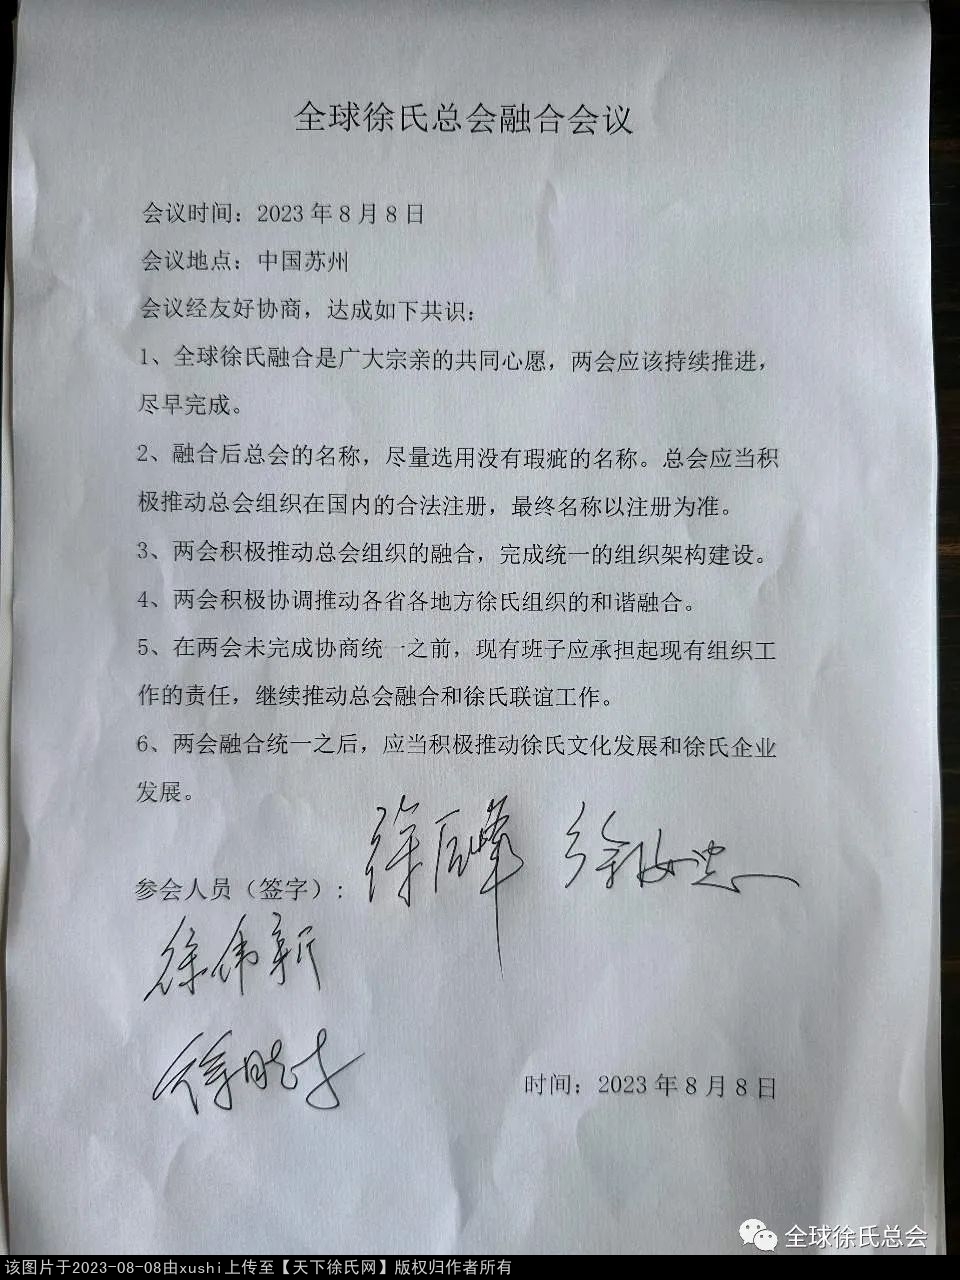 全球徐氏总会融合会议
会议时间：2023年8月8日
会议地点：中国苏州
会议经友好协商，达成如下共识：
1、全球徐氏融合是广大宗亲的共同心愿，两会应该持续推进，
尽早完成。
2、融合后总会的名称，尽量选用没有瑕疵的名称。总会应当积
极推动总会组织在国内的合法注册，最终名称以注册为准。
3、两会积极推动总会组织的融合，完成统一的组织架构建设。
4、两会积极协调推动各省各地方徐氏组织的和谐融合。
5、在两会未完成协商统一之前，现有班子应承担起现有组织工
作的责任，继续推动总会融合和徐氏联谊工作。
6、两会融合统一之后，应当积极推动徐氏文化发展和徐氏企业
发展。
参会人员（签字）：徐 峰 徐 忠
徐伟新
徐晓
时间：2023年8月8日
全球徐氏总会
该图片于2023-08-08由xushi上传至【天下徐氏网】版权归作者所有